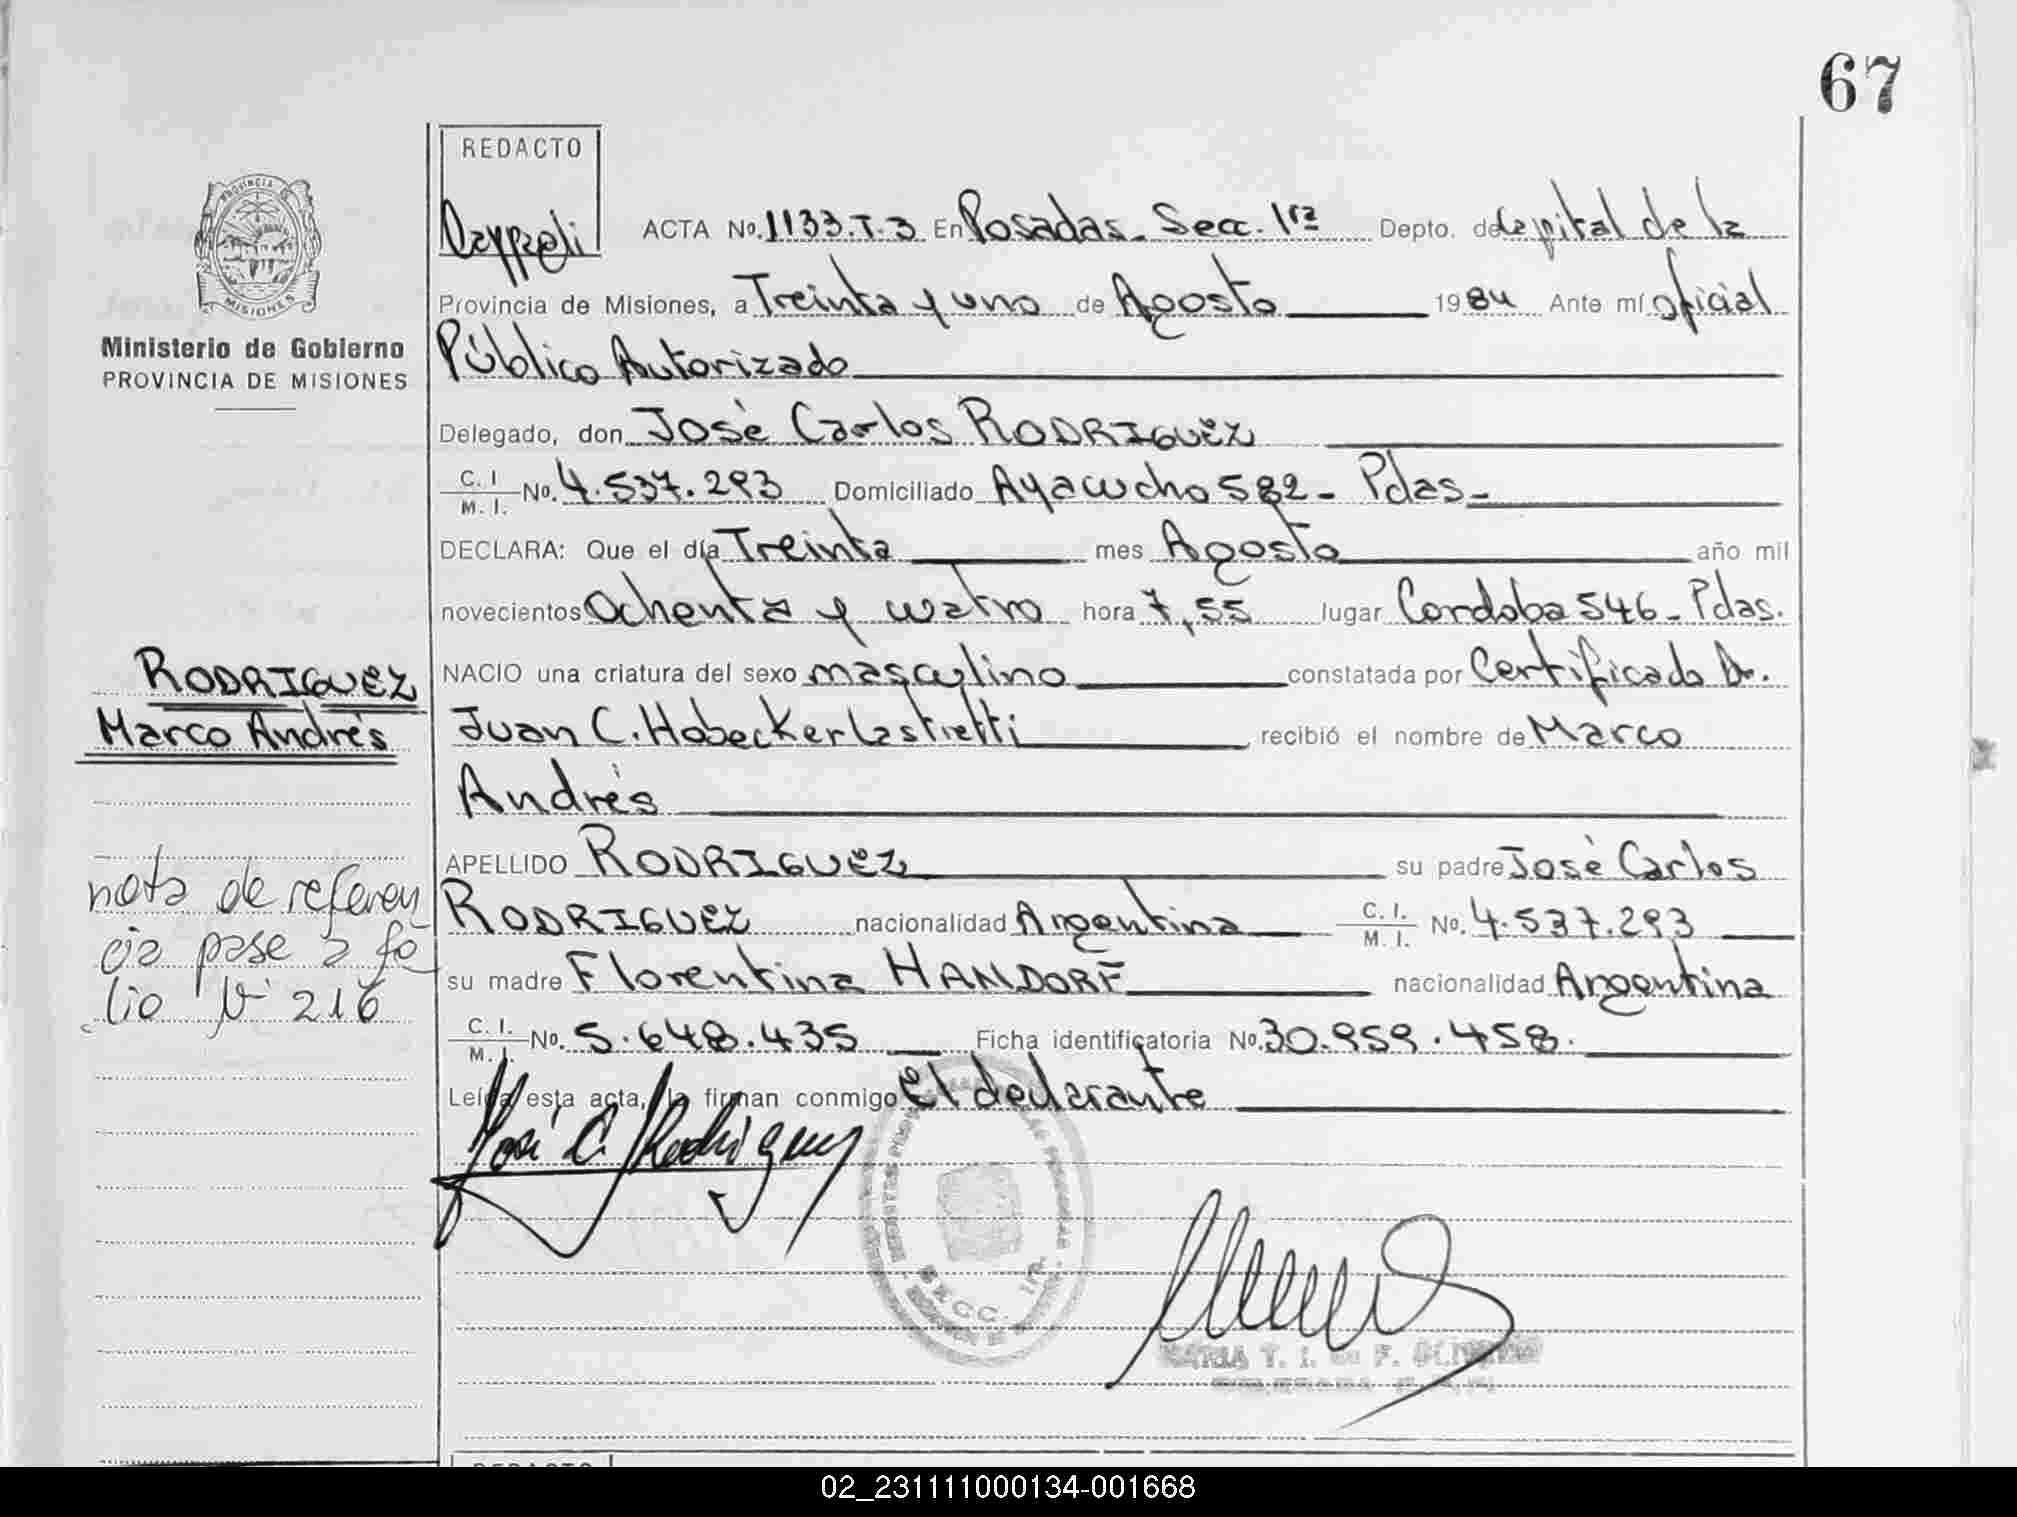 67
REDACTO
ACTA No. 1133.T.3 En Posadas - Secc. 1ra Depto. de Capital de la
Provincia de Misiones, a Treinta y uno de Agosto 1984 Ante mí oficial
Público Autorizado
Delegado, don José Carlos RODRIGUEZ
C. I. M. I. No. 4.537.293 Domiciliado Ayacucho 582 - Pdas -
DECLARA: Que el día Treinta mes Agosto año mil
novecientos Ochenta y cuatro hora 7,55 lugar Cordoba 546 - Pdas.
NACIO una criatura del sexo masculino constatada por Certificado Dr.
Juan C. Hobecker Lastretti recibió el nombre de Marco
Andrés
APELLIDO RODRIGUEZ su padre José Carlos
RODRIGUEZ nacionalidad Argentina C. I. M. I. No. 4.537.293
su madre Florentina HANDORF nacionalidad Argentina
C. I. M. I. No. 5.648.435 Ficha identificatoria No. 30.959.458.
Leída esta acta, la firman conmigo el declarante
José C. Rodriguez
SECC. 1ra.
MARIA T. I. de F.
PROVINCIA DE MISIONES
Ministerio de Gobierno
PROVINCIA DE MISIONES
RODRIGUEZ
Marco Andrés
nota de referen
cia pase a fo
lio N° 216
REDACTO
02_231111000134-001668